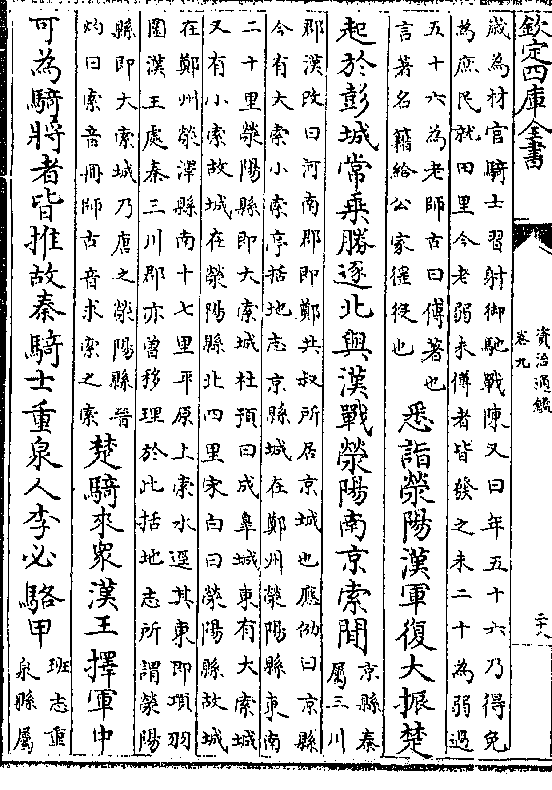 欽定四庫全書
資治通鑑
卷九
二十八
歲為材官騎士習射御馳戰陳又曰年五十六乃得免
為庶民就田里今老弱未傅者皆發之未二十為弱過
五十六為老師古曰傅著也
言著名籍給公家徭役也
悉詣滎陽漢軍復大振楚
起於彭城常乘勝逐北與漢戰滎陽南京索間
京縣秦
屬三川
郡漢改曰河南郡即鄭共叔所居京城也應劭曰京縣
今有大索小索亭括地志京縣城在鄭州滎陽縣東南
二十里滎陽縣即大索城杜預曰成臯城東有大索城
又有小索故城在滎陽縣北四里宋白曰滎陽縣故城
在鄭州滎澤縣南十七里平原上索水逕其東即項羽
圍漢王處秦三川郡亦曾移理於此括地志所謂滎陽
縣即大索城乃唐之滎陽縣晉
灼曰索音冊師古音求索之索
楚騎來衆漢王擇軍中
可為騎將者皆推故秦騎士重泉人李必駱甲
班志重
泉縣屬